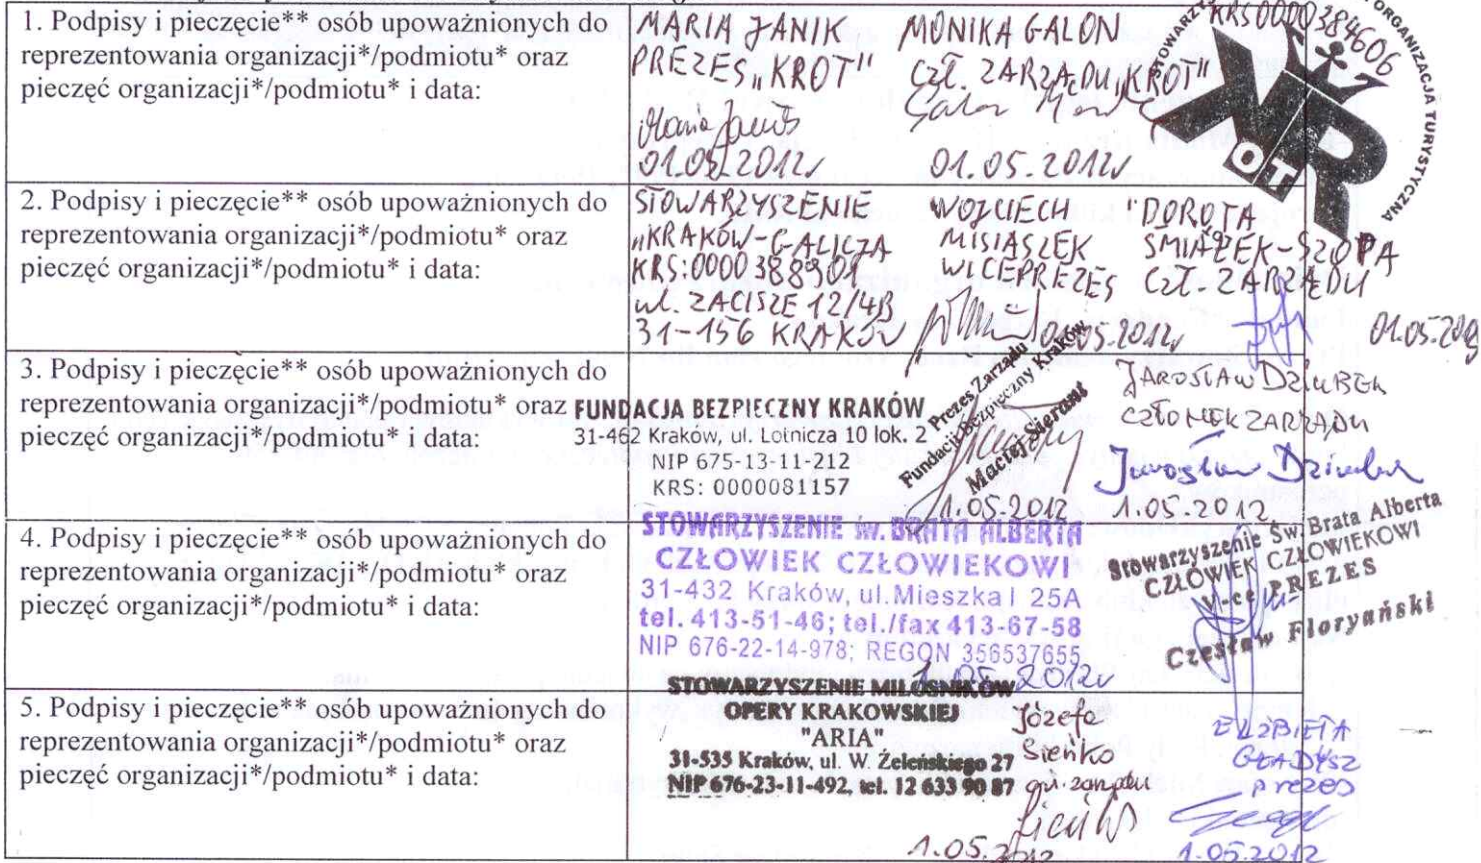 1. Podpisy i pieczęcie** osób upoważnionych do
reprezentowania organizacji*/podmiotu* oraz
pieczęć organizacji*/podmiotu* i data:
MARIA JANIK
PREZES „KROT"
Maria Janik
01.05.2012r
MONIKA GALON
CZŁ. ZARZĄDU „KROT"
01.05.2012r
KRS 0000384606
ORGANIZACJA TURYSTYCZNA
KR
OT
2. Podpisy i pieczęcie** osób upoważnionych do
reprezentowania organizacji*/podmiotu* oraz
pieczęć organizacji*/podmiotu* i data:
STOWARZYSZENIE
„KRAKÓW-GALICJA
KRS:0000388901
ul. ZACISZE 12/4B
31-156 KRAKÓW
WOJCIECH
MISIASZEK
WICEPREZES
01.05.2012r
DOROTA
SMIAŁEK-SZOPA
CZŁ. ZARZĄDU
01.05.2012
3. Podpisy i pieczęcie** osób upoważnionych do
reprezentowania organizacji*/podmiotu* oraz
pieczęć organizacji*/podmiotu* i data:
FUNDACJA BEZPIECZNY KRAKÓW
31-462 Kraków, ul. Lotnicza 10 lok. 2
NIP 675-13-11-212
KRS: 0000081157
Prezes Zarządu
Fundacji Bezpieczny Kraków
Maciej Sieramt
1.05.2012
JAROSŁAW DZIUBEK
CZŁONEK ZARZĄDU
Jarosław Dziubek
1.05.2012
4. Podpisy i pieczęcie** osób upoważnionych do
reprezentowania organizacji*/podmiotu* oraz
pieczęć organizacji*/podmiotu* i data:
STOWARZYSZENIE św. BRATA ALBERTA
CZŁOWIEK CZŁOWIEKOWI
31-432 Kraków, ul.Mieszka I 25A
tel. 413-51-46; tel./fax 413-67-58
NIP 676-22-14-978; REGON 356537655
1.05.2012r
Stowarzyszenie Św. Brata Alberta
CZŁOWIEK CZŁOWIEKOWI
V-ce PREZES
Czesław Floryański
5. Podpisy i pieczęcie** osób upoważnionych do
reprezentowania organizacji*/podmiotu* oraz
pieczęć organizacji*/podmiotu* i data:
STOWARZYSZENIE MIŁOŚNIKÓW
OPERY KRAKOWSKIEJ
"ARIA"
31-535 Kraków, ul. W. Żeleńskiego 27
NIP 676-23-11-492, tel. 12 633 90 87
Józefa
Sieńko
zarządu
1.05.2012
ELŻBIETA
GŁADYSZ
prezes
1.05.2012